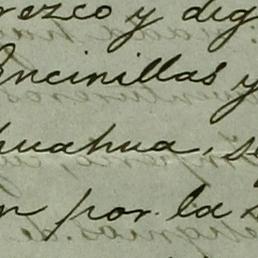 rezco y dig
Encinillas y
huahua, se
n por la s